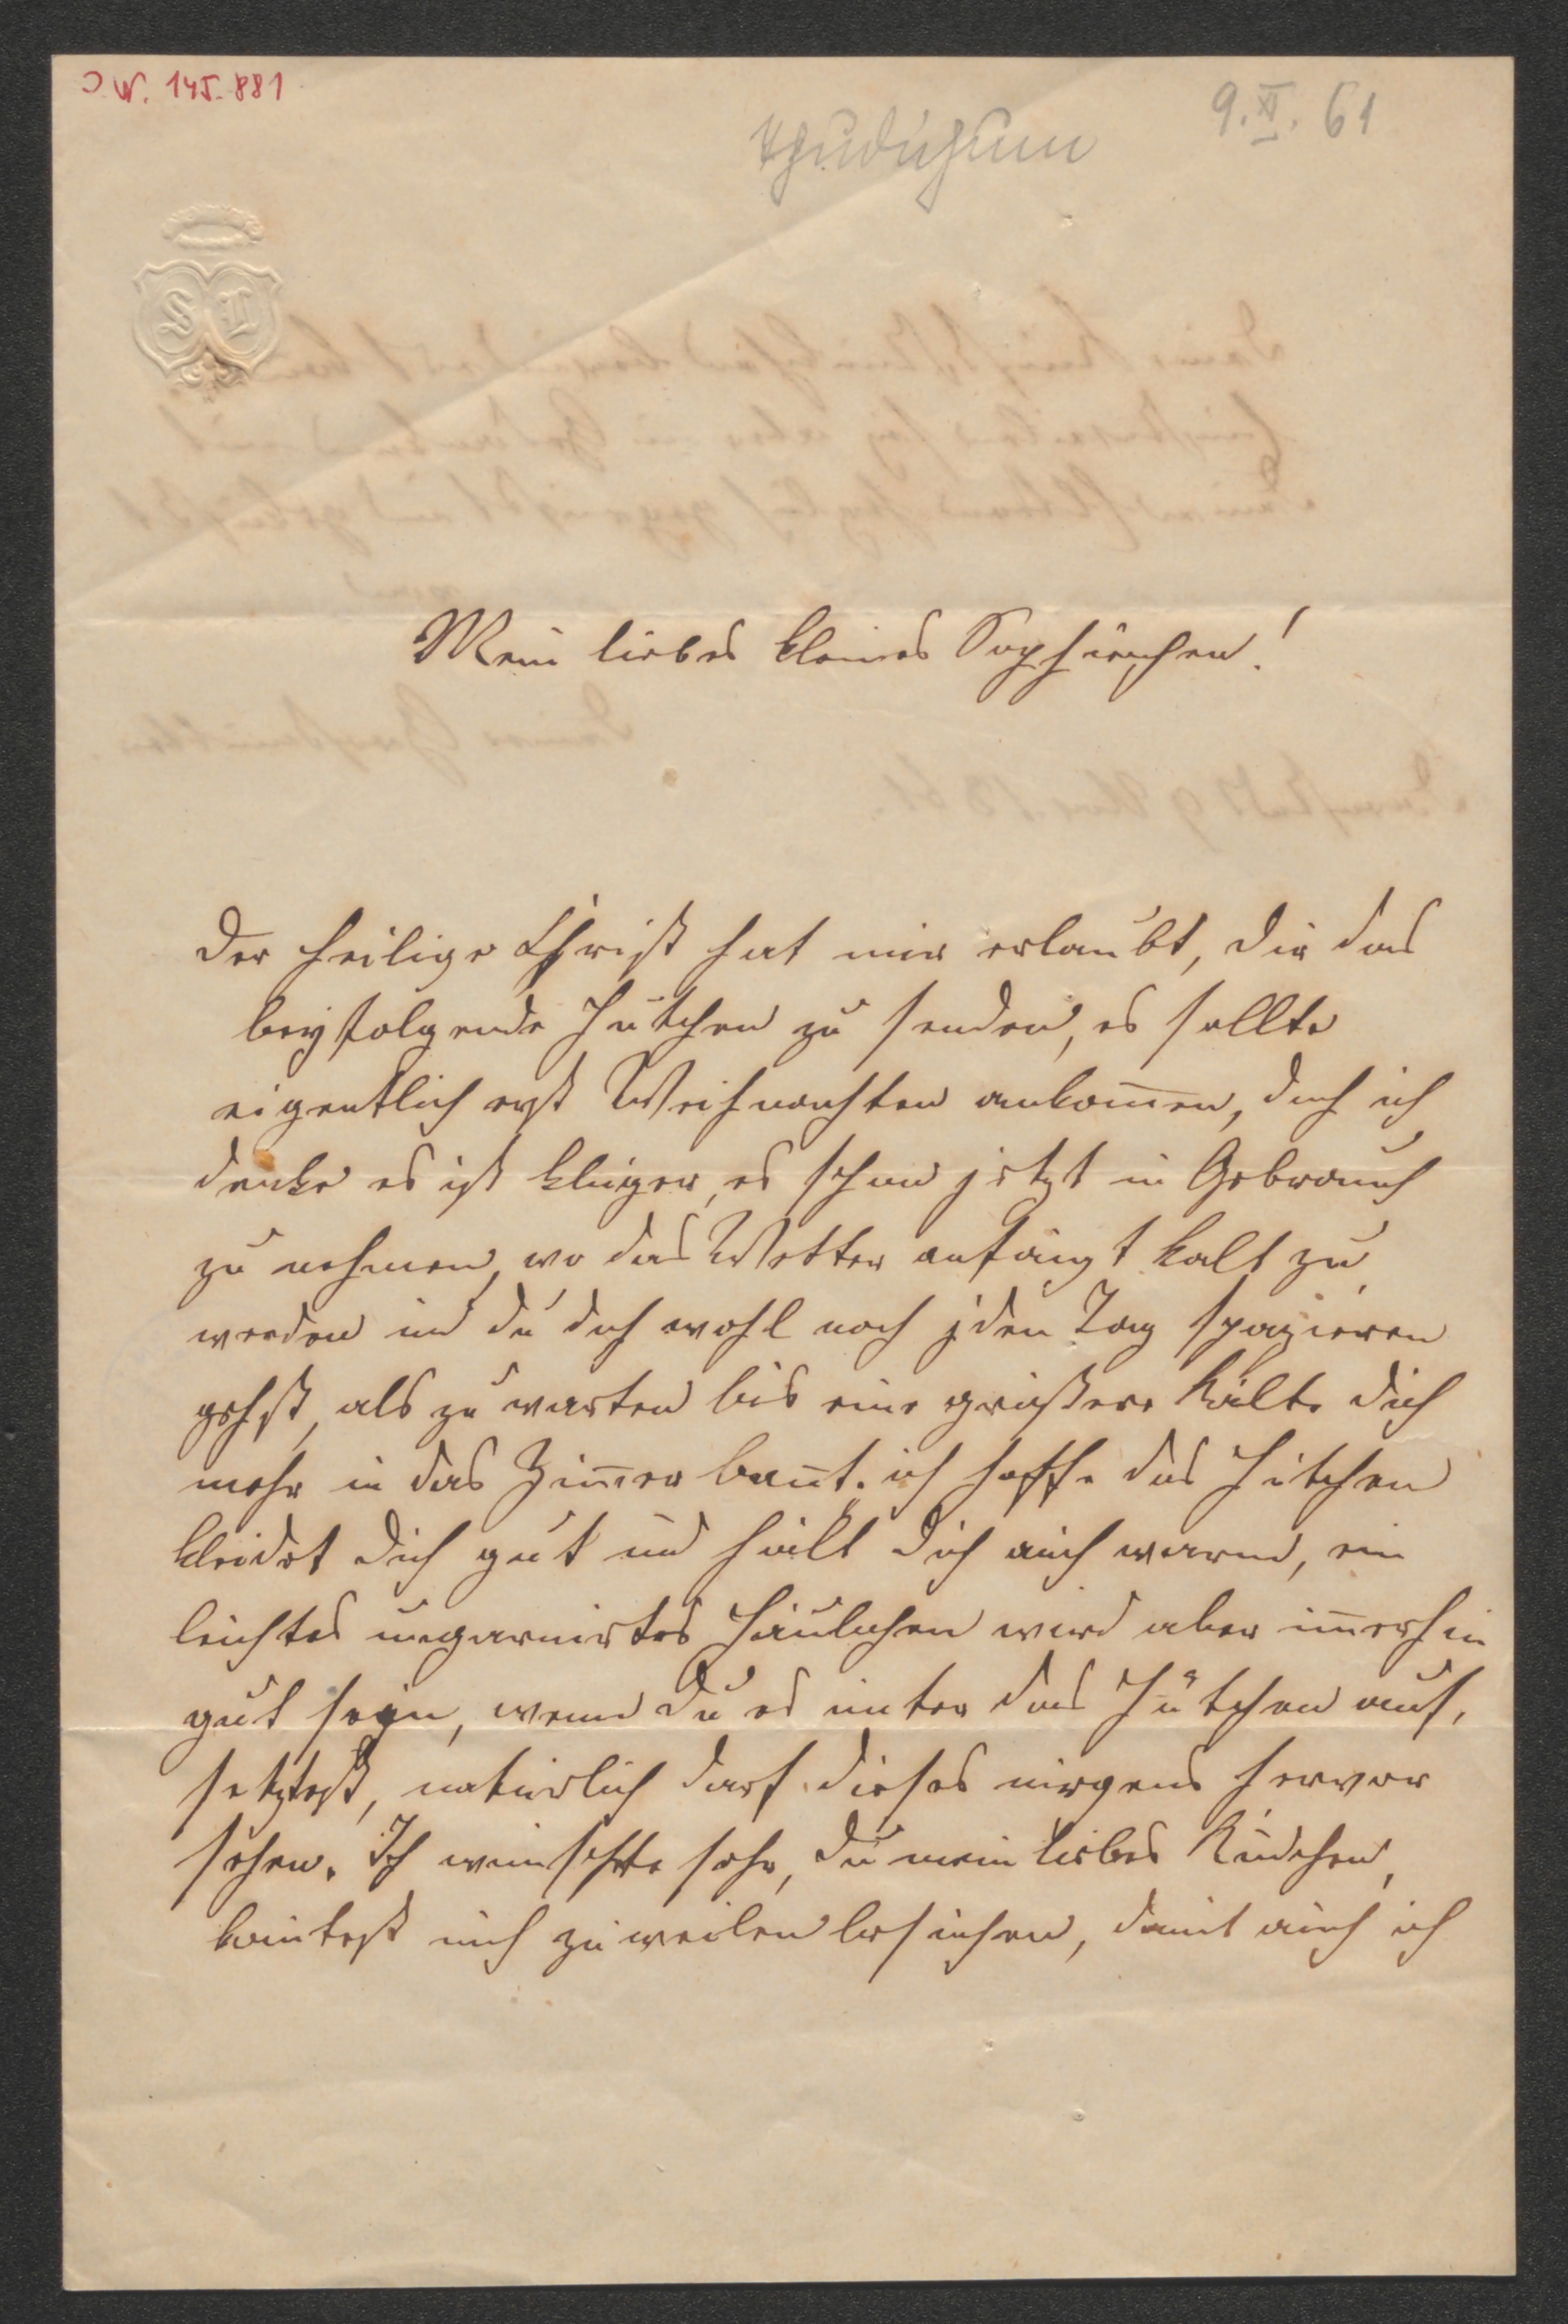 J. N. 145.881
9. XI. 61
S L
Mein liebes kleines Sophiechen!
Der heilige Christ hat mir erlaubt, Dir das
beyfolgende Hütchen zu senden, es sollte
eigentlich erst Weihnachten ankom̄en, doch ich
denke es ist klüger, es schon jetzt in Gebrauch
zu nehmen, wo das Wetter anfängt kalt zu
werden und du doch wohl noch jden Tag spazieren
gehst, als zu warten bis eine größere Kälte dich
mehr in das Zim̄er ban̄t. ich hoffe das Hütchen
kleidet dich gut und hält dich auch warm, ein
leichtes ungarnirtes Häubchen wird aber im̄erhin
gut seyn, wenn Du es unter das Hütchen auf,
setztest, natürlich darf dieses nirgens hervor
sehen. Ich wünschte sehr, Du mein liebes Kindchen,
kön̄test mich zuweilen besuchen, damit auch ich